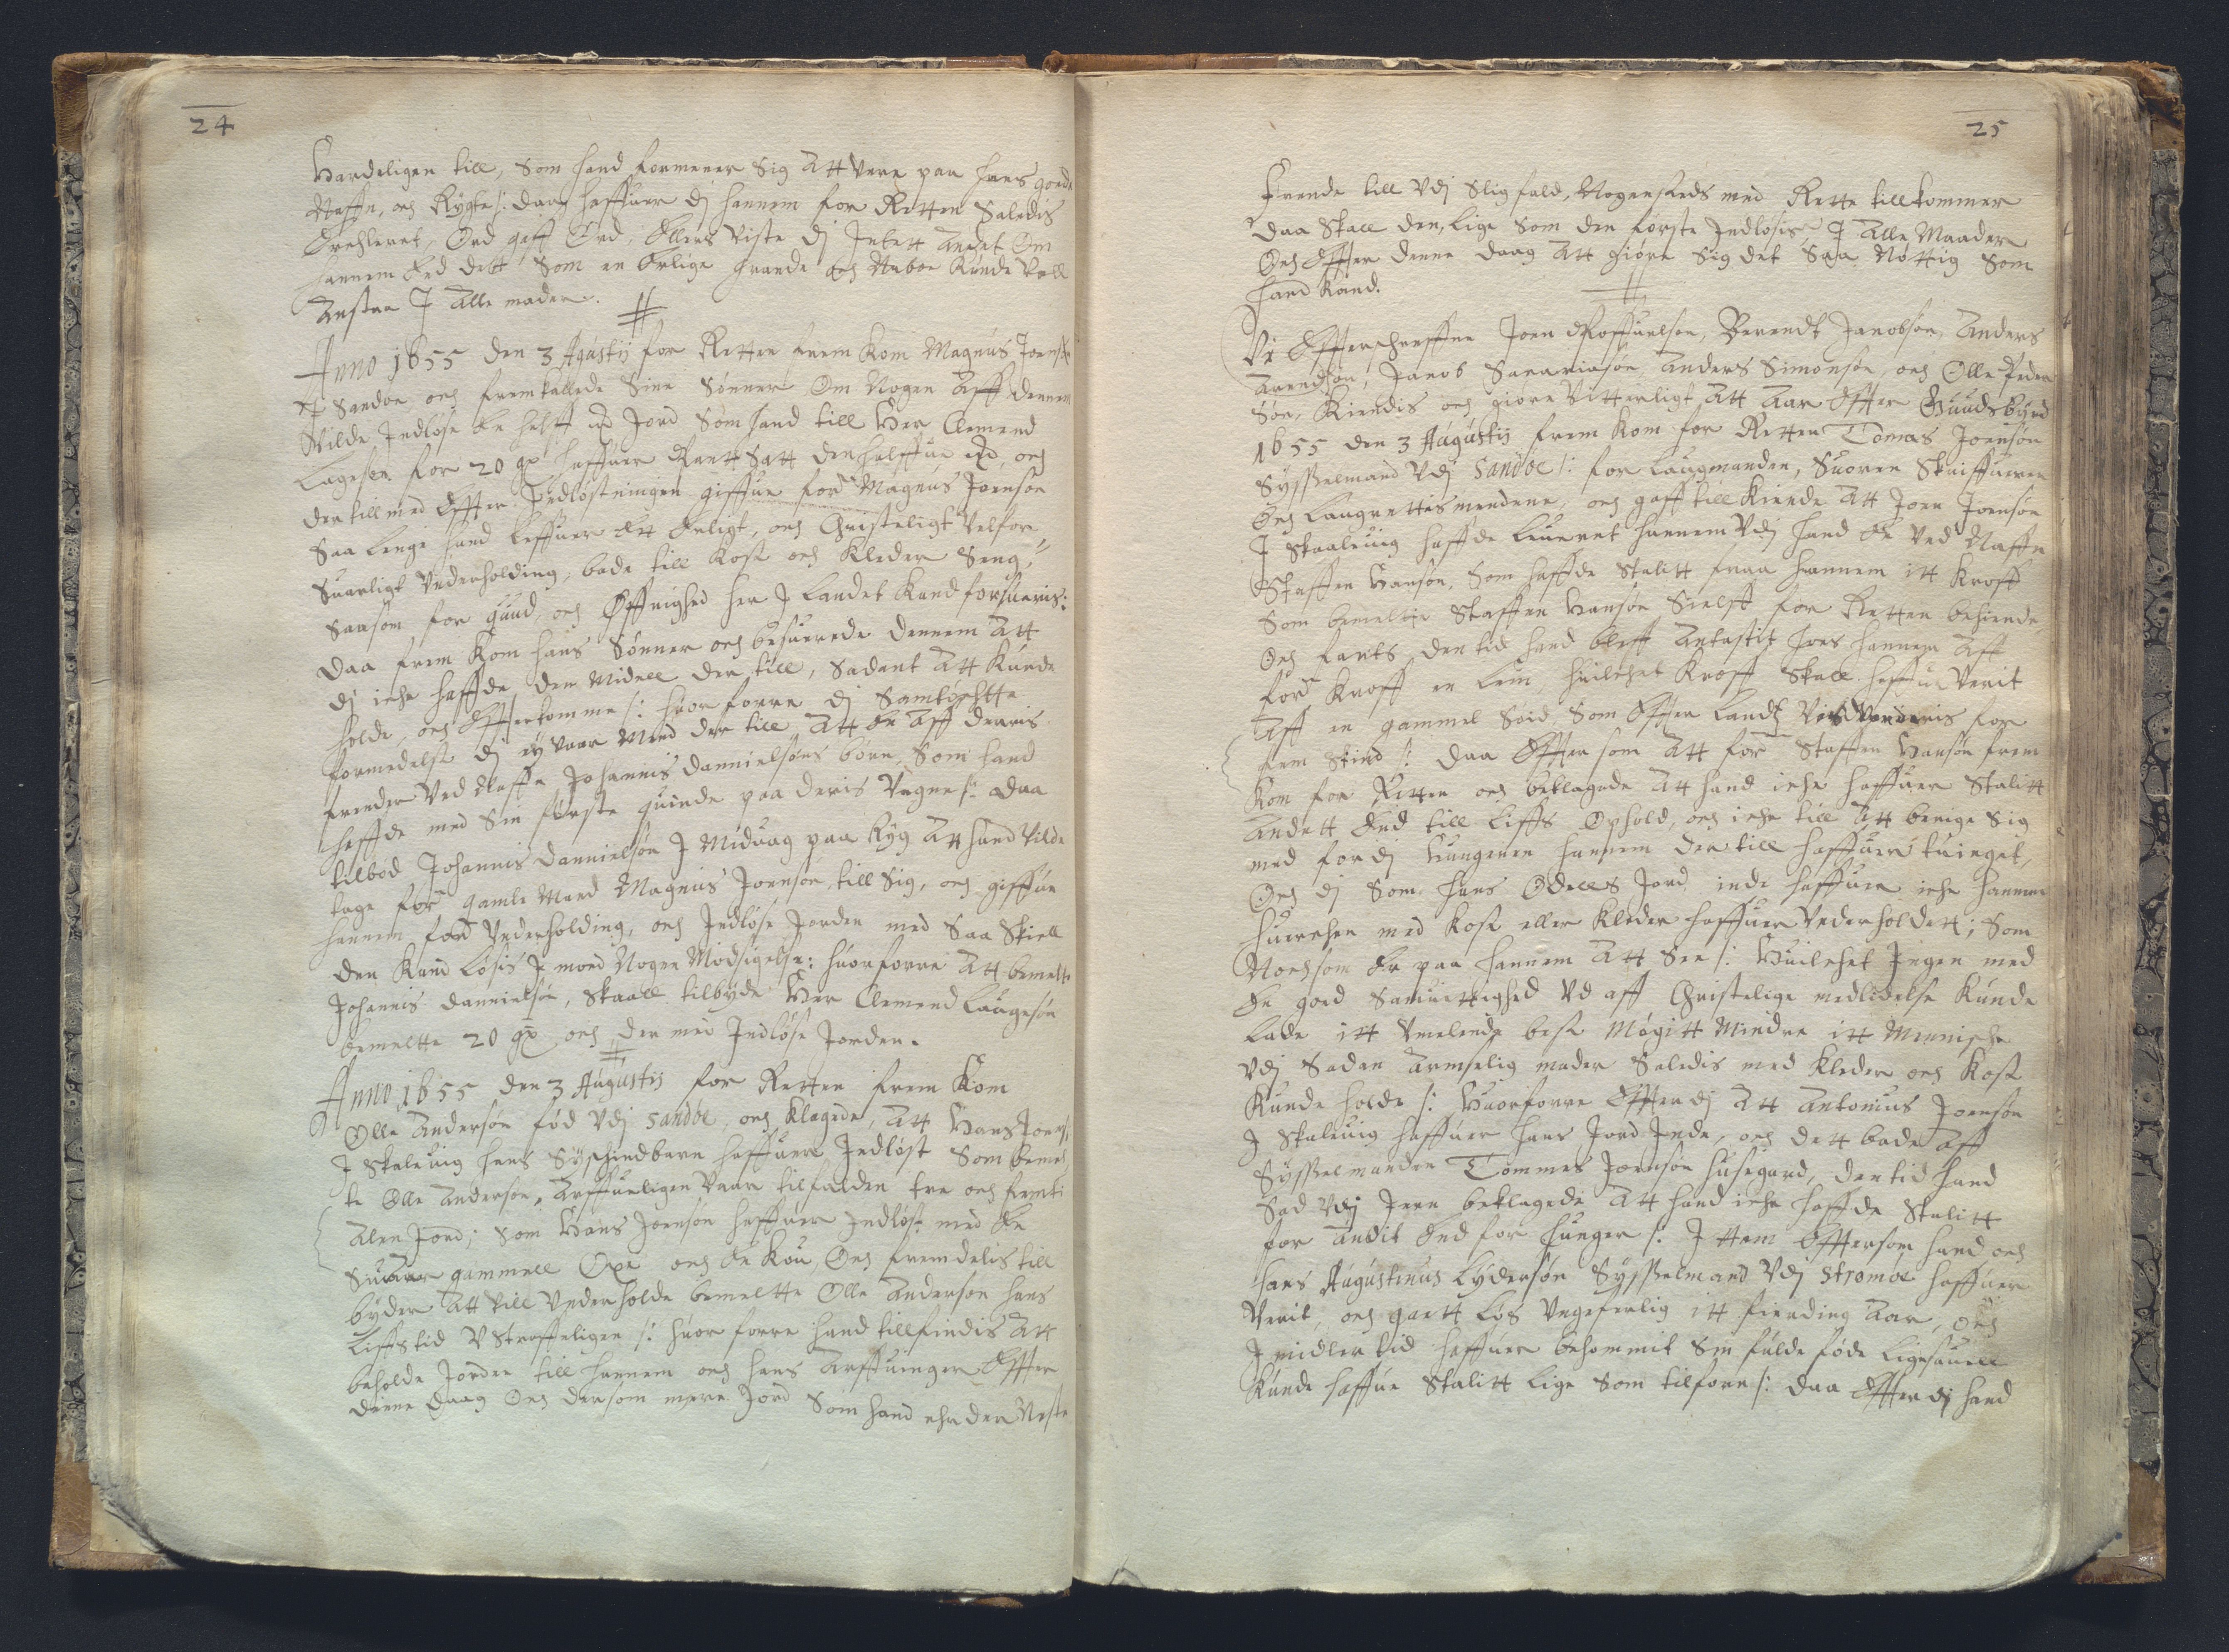 24
Vardeligen till, Som hand formener Sig Att Vere paa hans goede
Naffn, och Rygte /: daag haffuer dj hannem for Retten Saledis
Erchleret, Ord gaff Ord, Ellers Viste dj Intett Andet Om
hannem End dett Som en Erlige Grande och Naboe Kunde Vell
Anstaa J Alle mader.
Anno 1655 den 3 Agustij for Retten frem Kom Magnus Joensøn
Sandoe och fremkallede Sine Sønner Om Nogen Aff dennem
Vilde Indløse En halff Jord Som hand till Her Clemend
Lagesen for 20 haffuer Pant Satt den halffue och
der till med Effter Indløstningen giffue ford Magnus Joensøn
Saa lenge hand leffuer Ett Erligt, och Christeligt Velfor
Suarligt Underholding, bade till Kost och Kleder Seng,
Saasom for Guud, och Øffrighed her J Landet Kand forsuaris:
Daa frem Kom hans Sønner och besuerede dennem Att
dj iche haffde den Midell der till, Sadant Att Kunde
holde, och Effterkomme /: huor forre dj Samtøchtte
formedelst dj ey Vaar Mend der till Att En Aff derris
frender Ved Naffn Johannis Dannielsøns børn, Som hand
haffde med Sin første quinde paa deris Vegne /: Daa
tilbød Johannis Dannielsøn J Miduaag paa Ryg Att hand Vilde
tage for gamle Mand Magnus Joensøn till Sig, och giffue
hannem ford Underholding, och Indløse Jorden med Saa Skiell
den Kand Løsis J mod Nogen Modsigelse: huorforre Att bemelte
Johannis Dannielsøn, Skaall tilbyde Her Clemend Laugesøn
bemeltte 20 och der med Indløse Jorden.
Anno 1655 den 3 Augustij for Retten frem Kom
Olle Andersøn fød Udj Sandøe, och Klagede, Att Hans Joens:
J Skaleuig hans Syschindbarn haffuer Indløst Som bemel
te Olle Andersøn, Arffueligen Vaar tilfalden tre och femti
Alen Jord; Som Hans Joensøn haffuer Indløst med En
gammell Oxe och En Kou, Och fremdelis till
byder Att Vill Underholde bemeltte Olle Andersøn hans
Liffs tid Ustraffeligen /: huor forre hand tillfindis Att
beholde Jorden till hannem och hans Arffuinger Effter
denne Daag Och dersom mere Jord Som hand ehr den Neste
25
Frende till Udj Slig fald, Nogensteds med Rette tillkommer
daa Skall den, lige Som den første Indløsis J Alle Maader
Och Effter denne daag Att giøre Sig det Saa Nøttig Som
hand Kand.
Vi Effterschreffne Joen Poffuelsøn, Berendt Jacobsøn, Anders
Arendsøn, Jacob Sacariasøn Anders Simonsøn, och Olle Peder
Søn, Kiendis och giøre Vitterligt Att Aar Effter Guuds byrd
1655 den 3 Augustij frem Kom for Retten Tomas Joensøn
Sysselmand Udj Sandøe /: for Laugmanden, Suoren Skriffueren
Och Laugrettismendene, och gaff till Kiende Att Joen Joensøn
J Skaaleuig haffde Leueret hannem Udj hand En Ved Naffn
Staffen Hansøn, Som haffde Stalitt fraa hannem itt Kroff
Som bemeltte Staffen Hansøn Sielff for Retten bekiende,
Och fantes den tid hand bleff Antastit hos hannem Aff
ford Kroff en Lem, huilchet Kroff Skall haffue Verit
Aff en gammel Soid, Som Effter Landtz Vis Vorderis for
fem Skind /: Daa Effter som Att for Staffen Hansøn frem
Kom for Retten och beklagede Att hand iche haffuer Stalitt
Andett End till Liffs Ophold, och iche till Att berige Sig
med fordj Hungeren hannem der till haffuer tuinget,
Och dj Som hans Odells Jord inde haffuer iche hannem
huerchen med Kost eller Kleder haffuer Underholdett; Som
Nochsom Er paa hannem Att See /: Huilchet Ingen med
En goed Samuittighed Ud aff Christelige medlidelse Kunde
Lade itt Umelende best Megitt Mindre itt Mennische
Udj Sadan Armselig mader Saledis med Kleder och Kost
Kunde holde /: Huorforre Effterdj Att Antonius Joensøn
J Skaleuig haffuer hans Jord Inde, och dett bade Aff
Sysselmanden Tommes Joensøn Husegaard, den tid hand
Sad Udj Jern beklagede Att hand iche haffde Stalitt
for Andit End for hunger /: Jttem Effttersom hand och
hans Augustinus Lydersøn Sysselmand Udj Strømøe haffuer
Verit, och gaett Løs Ungeferlig itt fierding Aar, Och
J midler tid haffuer bekommit Sin fulde føde Ligesauell
Kunde haffue Stalitt Lige Som tilforn /: Daa Effterdj hand